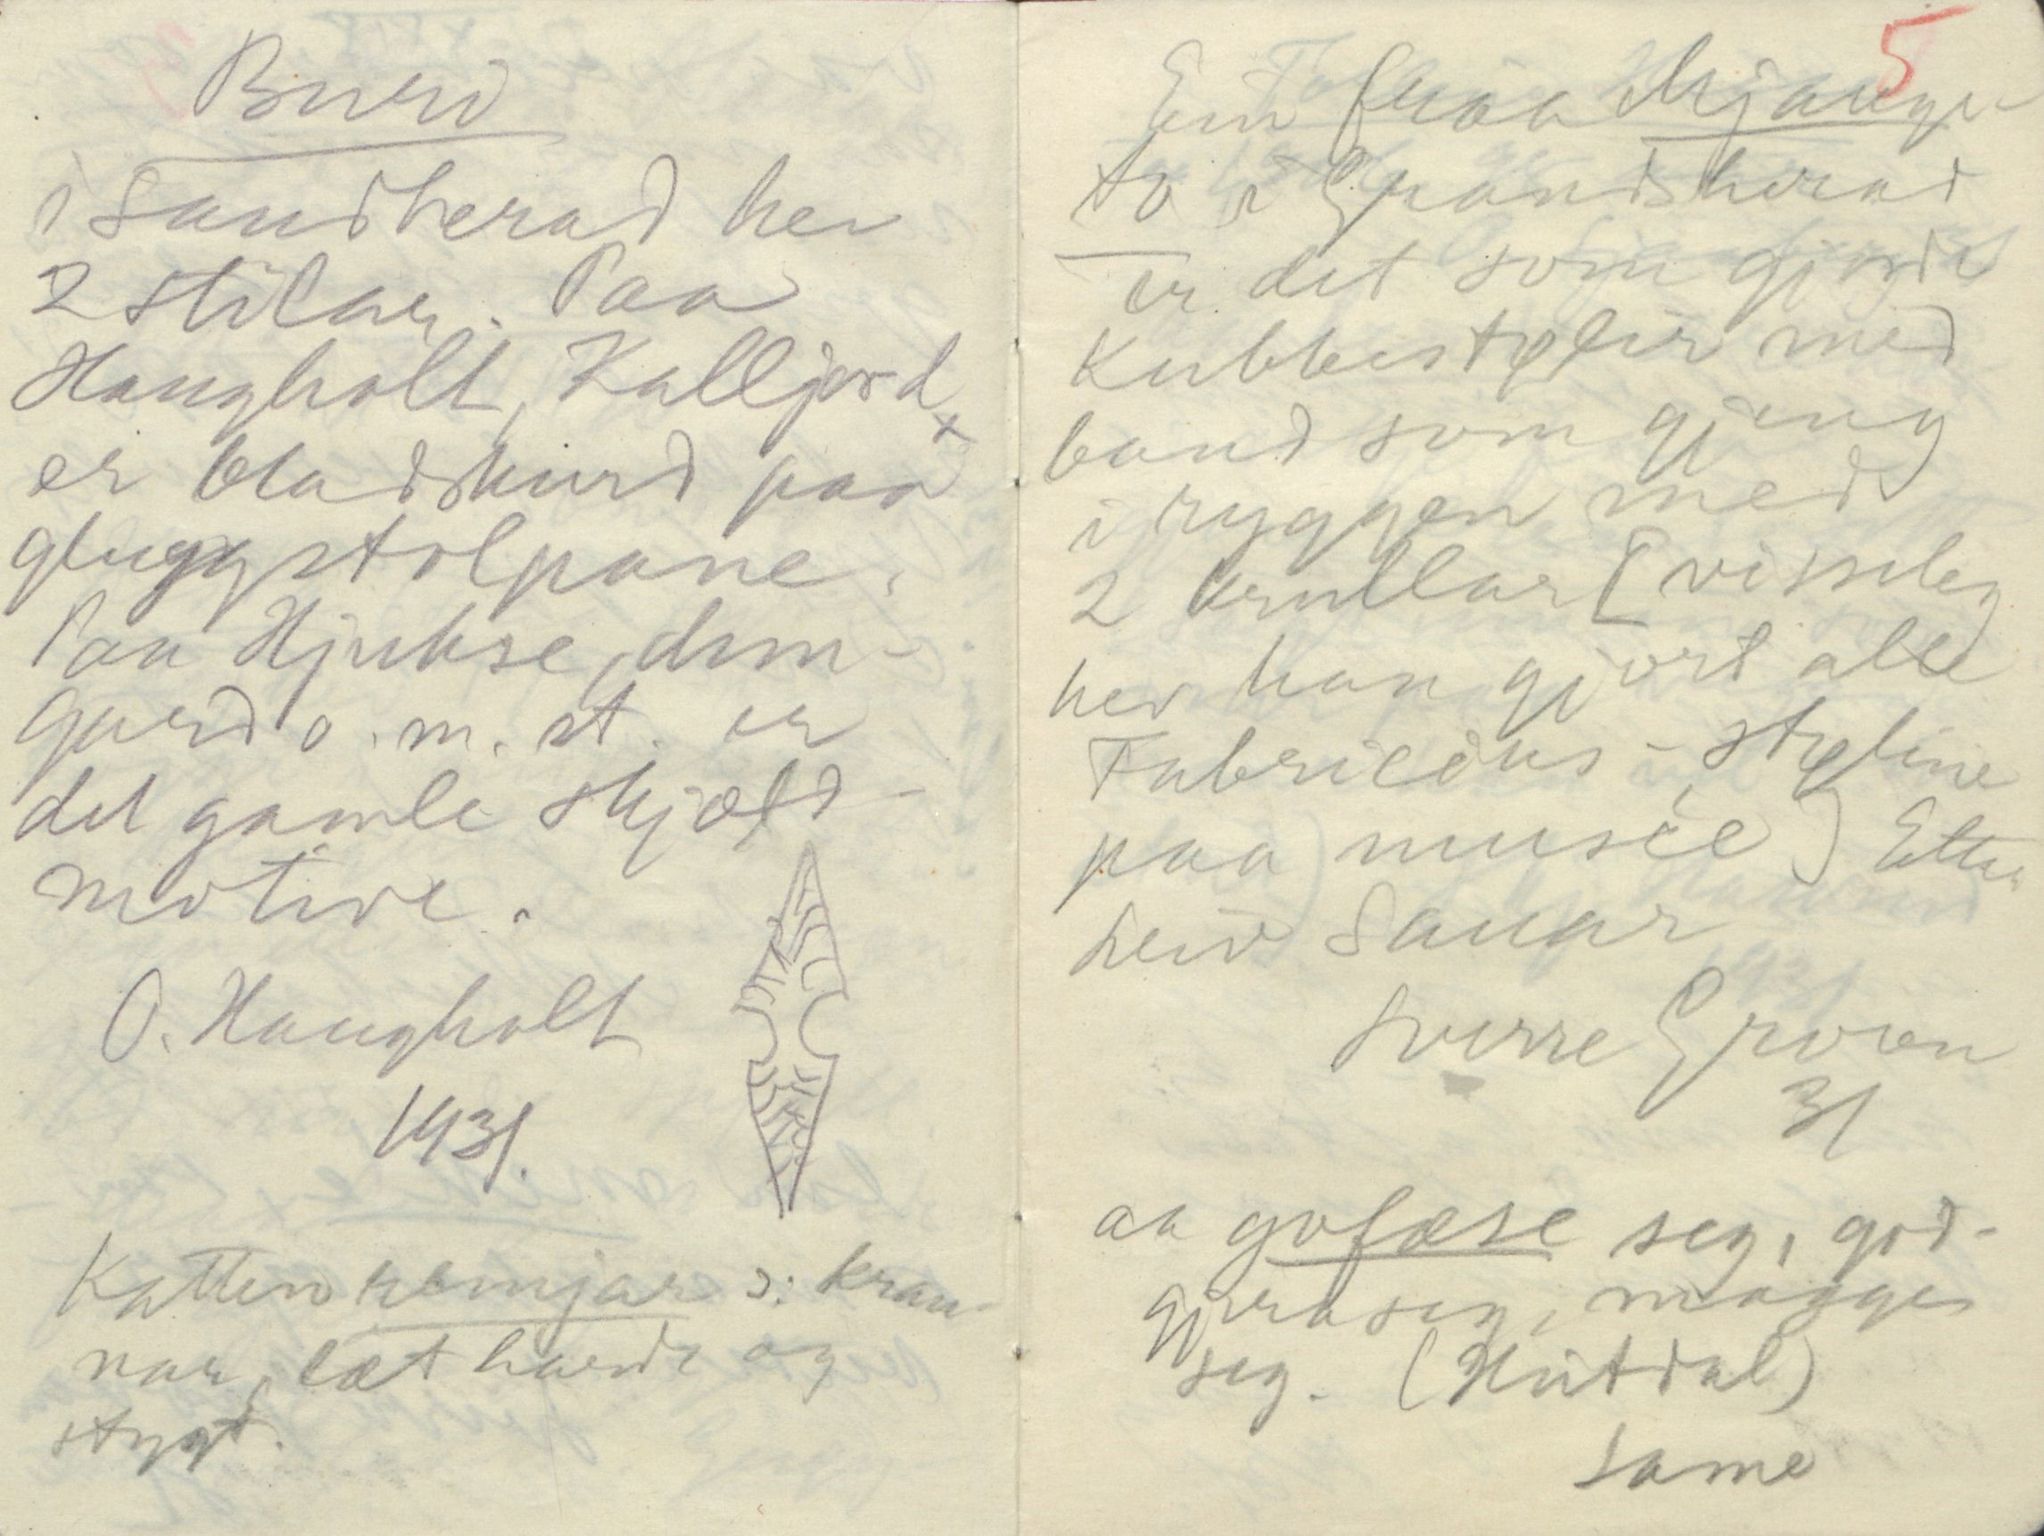 Burid
i Sandherad hev
2 stilar. Paa
Haugholt, Kalljord x
er bladskurd paa
gluggstolpane.
Paa Hjukse, dom-
gard o.m.st. er
det gamle skjæld-
motive.
O. Haugholt
1931.
Katten remjar ɔ: kran-
nar, læt hardt og
stygt.
5
Ein fraa Mjaugs-
to i Grandsherad
er det som gjorde
Kubbestolir med
band som gjeng
i ryggen med
2 krullar [visseleg
hev han gjort alle
Fabricius-stoline
paa musee) Etter
heid Sauar
Sverre Groven
31
aa gofæse seg, god-
gjera seg, magges
seg. (Hitdal)
Same